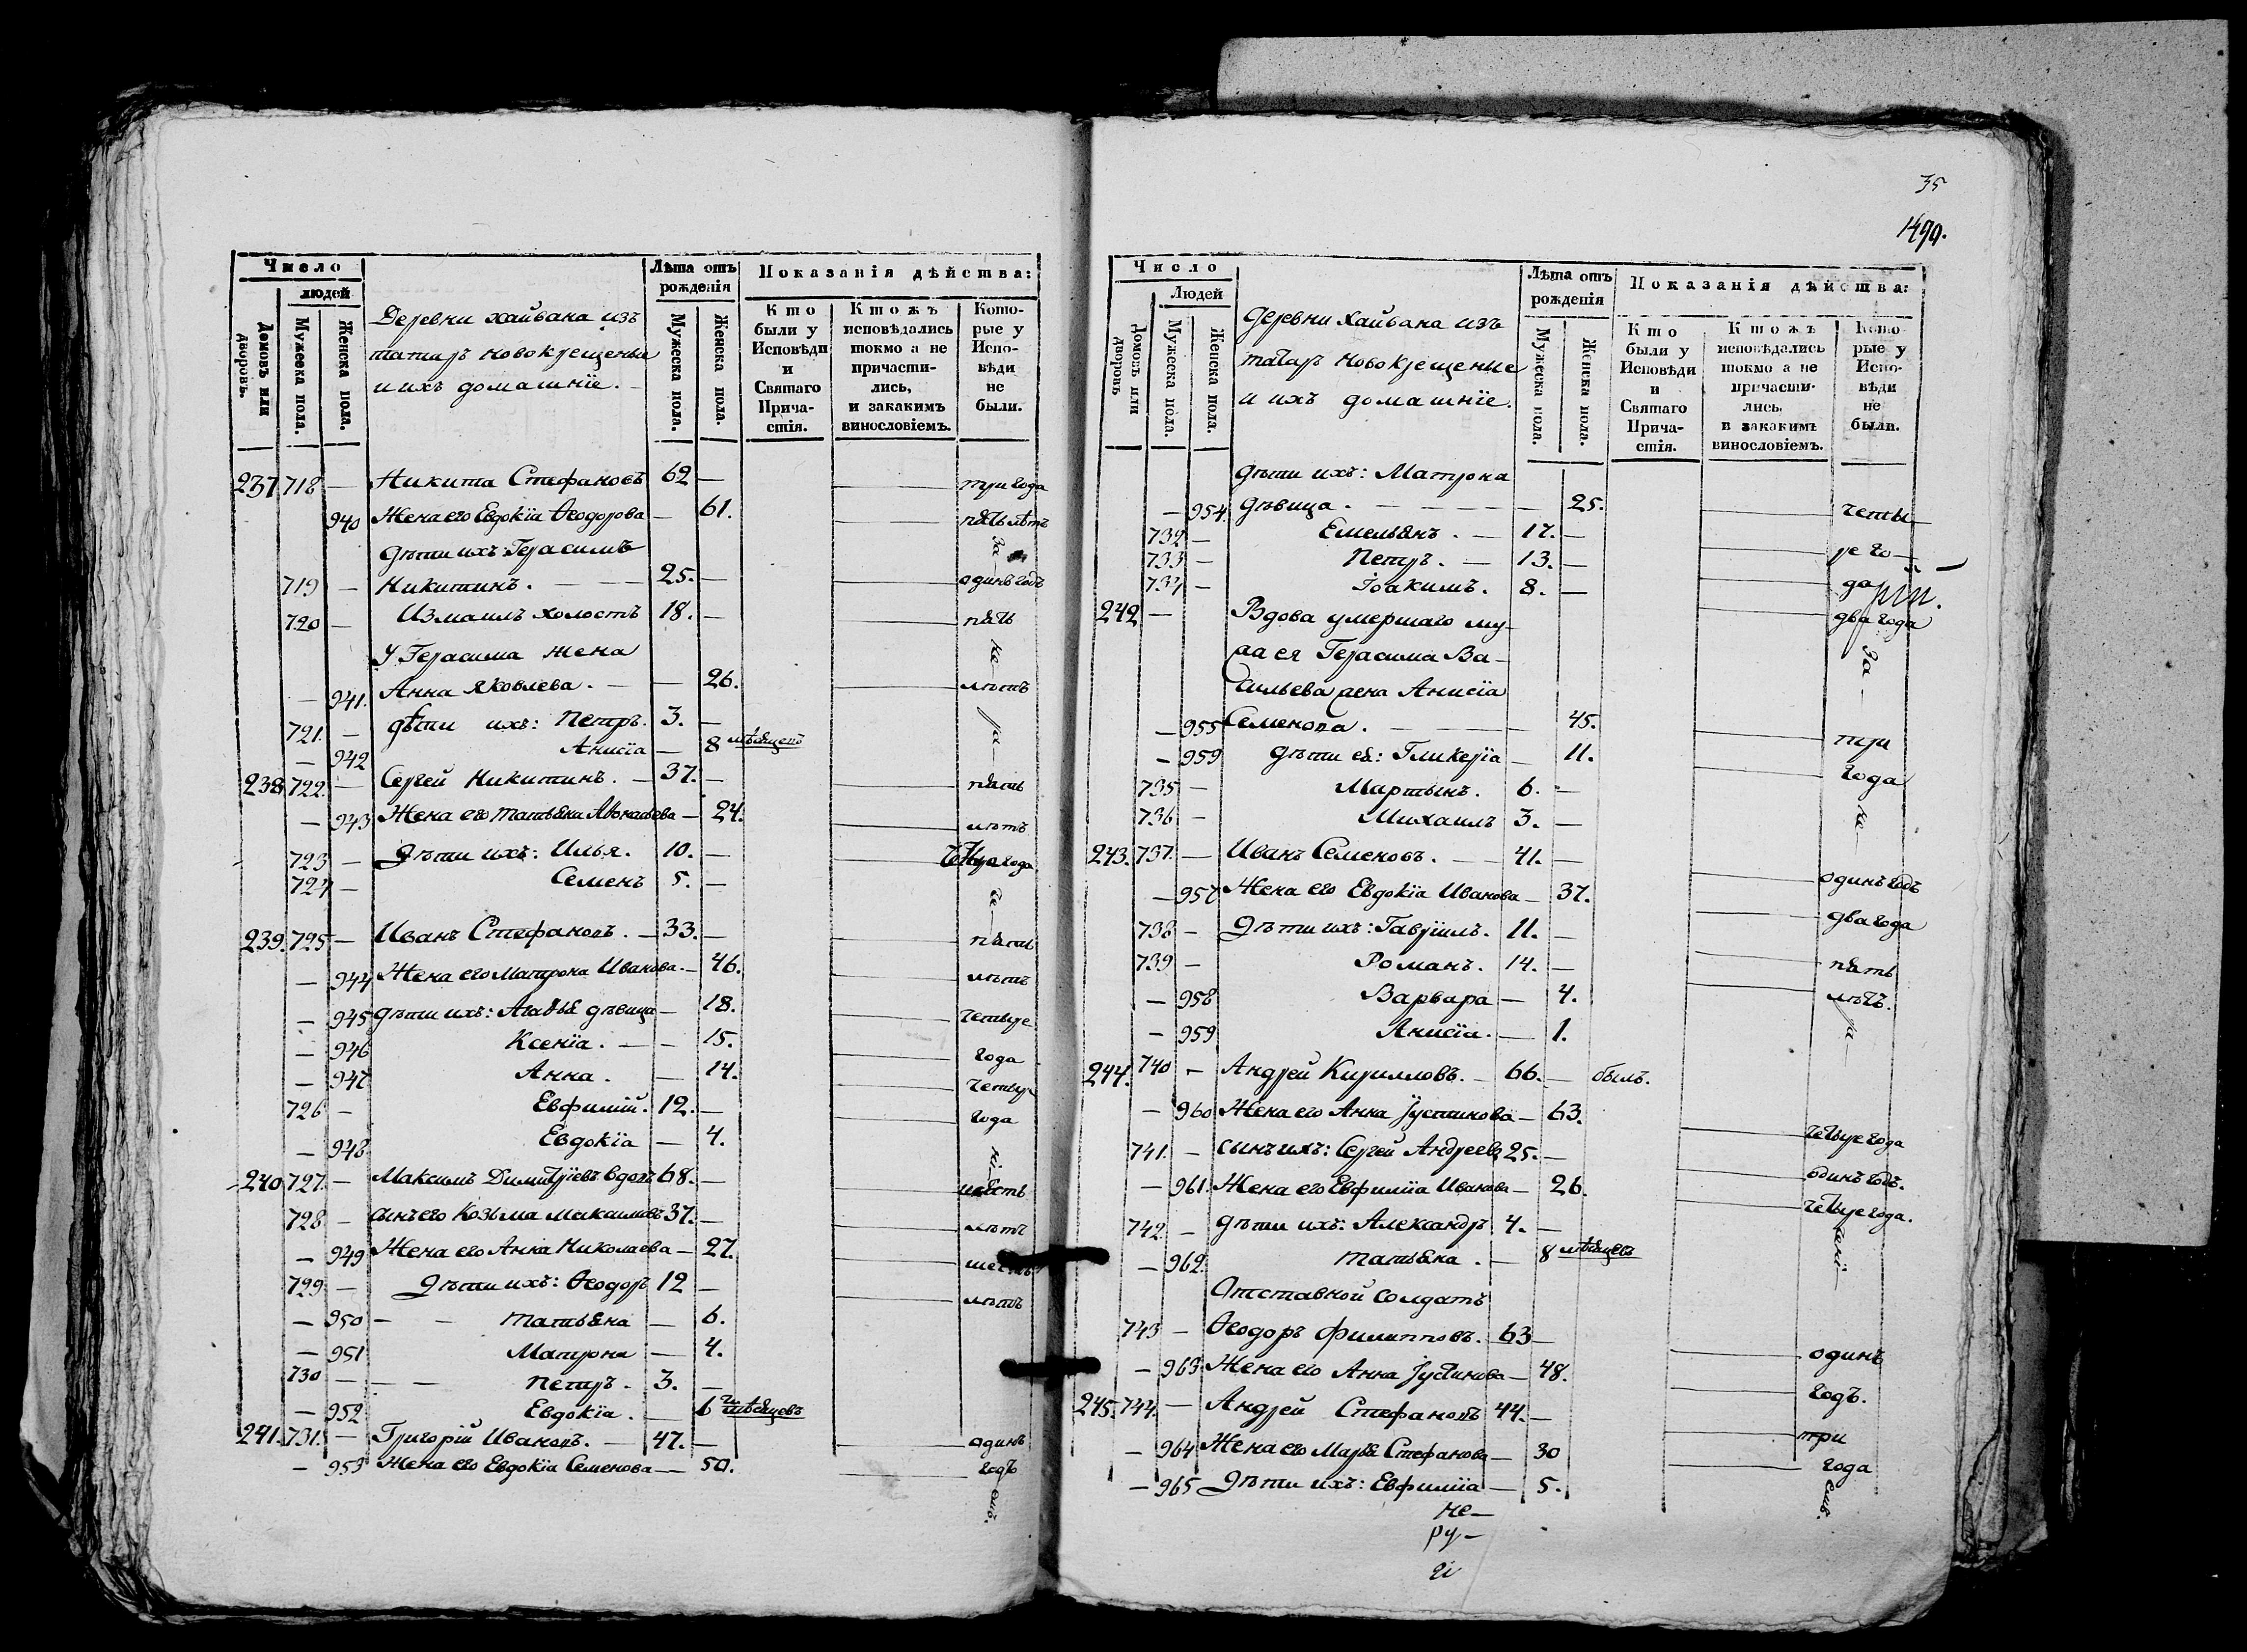 Число
людей
Домовъ или дворовъ.
Мужеска пола.
Женска пола.
Деревни Хайвана изъ
татаръ новокрещеные
и ихъ домашнїе. —
Лѣта отъ рожденія
Мужеска пола.
Женска пола.
Показанія дѣйства:
Кто были у Исповѣди и Святаго Причастія.
Ктожъ исповѣдались токмо а не причастились, и закакимъ винословіемъ.
Которые у Исповѣди не были.
237 718 — Никита Стефановъ 62 — три года
940 Жена его Евдокїа Ѳеодорова — 61. пять лѣтъ
Дѣти ихъ: Герасимъ за
719 — Никитинъ. — 25. — одинъ годъ
720 — Измаилъ холостъ 18. — пять
У Герасима жена не
— 941. Анна Яковлева. — — 26. лѣтъ
721. — дѣти ихъ: Петръ. 3. —
— 942 Анисїа — 8 мѣсяцевъ
238 722. — Сергей Никитинъ. — 37. — пять
— 943 Жена его Татьяна — 24. лѣтъ
723 — Дѣти ихъ: Илья. 10. — года
724 — Семенъ 5. —
239. 725 — Иванъ Стефановъ. — 33. — пять
— 944 Жена его Матрона Иванова. — 46. лѣтъ
— 945 дѣти ихъ: Агафья дѣвица — 18. четыре
— 946 Ксенїа. — — 15. года
— 947 Анна. — 14. четыре
726 — Евфимїй. 12. — года
— 948 Евдокїа — 4.
240 727. — Максимъ Димитрїевъ вдовъ 68. — шесть
728 — сынъ его Козьма Максимовъ 37. — лѣтъ
— 949 Жена его Анна Николаева — 27. шесть
729 — Дѣти ихъ: Ѳеодоръ 12 — лѣтъ
— 950 — — Татьяна — 6.
— 951 Матрона — 4.
730 — — — Петръ. 3. —
— 952 Евдокїа. — 6 мѣсяцевъ
241. 731. — Григорїй Ивановъ. — 47. — одинъ
— 953 Жена его Евдокїа Семенова — 50. годъ
35
1490.
Число
Людей
Домовъ или дворовъ
Мужеска пола.
Женска пола.
Деревни Хайвана изъ
татаръ новокрещеные
и ихъ домашнїе.
Лѣта отъ рожденія
Мужеска пола.
Женска пола.
Показанія дѣйства:
Кто были у Исповѣди и Святаго Причастія.
Ктожъ исповѣдались токмо а не причастились, и закакимъ винословіемъ.
Которые у Исповѣди не были.
Дѣти ихъ: Матрона
— 954 дѣвица. — — — — — 25. четы—
732 — Емельянъ. — 17. — ре го—
733 — Петръ. — 13. —
734 — Іоакимъ. 8. — да
242 — Вдова умершаго му— два года
жа ея Герасима Ва— за
сильева жена Анисїа
— 955 Семенова. — — 45. три
— 959 дѣти ея: Гликерїа — 11. года
735 — Мартынъ. 6. —
736 — Михаилъ 3. — не
243. 737. — Иванъ Семеновъ. — — 41. — одинъ годъ
— 957 Жена его Евдокїа Иванова — 37. два года
738 — Дѣти ихъ: Гаврїилъ. 11. — пять
739 — Романъ. 14. — лѣтъ.
— 958 Варвара — 4.
— 959 Анисїа. — 1.
244. 740 — Андрей Кирилловъ. — 66. — былъ.
— 960 Жена его Анна Іустинова — 63. четыре года
741. — сынъ ихъ: Сергей Андреевъ 25. — одинъ годъ.
— 961. Жена его Евфимїа Иванова — 26. четыре года.
742 — дѣти ихъ: Александръ 4. —
— 962. Татьяна. — 8 мѣсяцевъ
Отставной солдатъ
743 — Ѳеодоръ Филипповъ. 63 — одинъ
— 963 Жена его Анна Іустинова — 48. годъ.
245. 744. — Андрей Стефановъ 44. — три
— 964 Жена его Марья Стефанова — 30 года
— 965 Дѣти ихъ: Евфимїа — 5.
не—
ру—